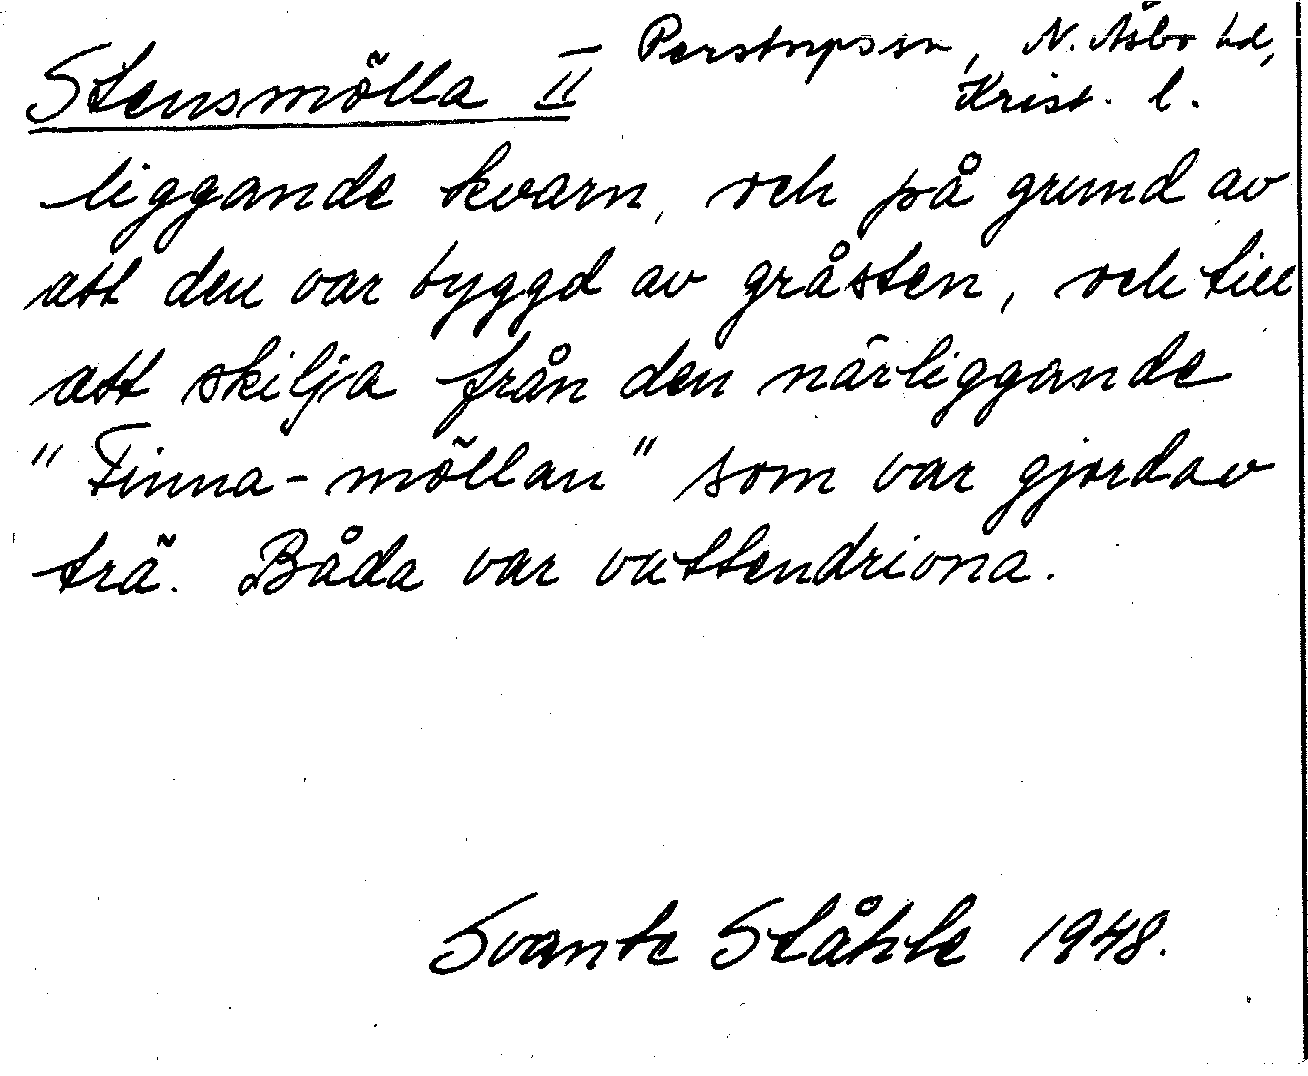 Stensmölla II Perstorps sn, N. Åsbo hd,
Krist. l.
liggande kvarn, och på grund av
att den var byggd av gråsten, och till
att skilja från den närliggande
"Finna-möllan" som var gjord av
trä. Båda var vattendrivna.
Svante Ståhle 1948.